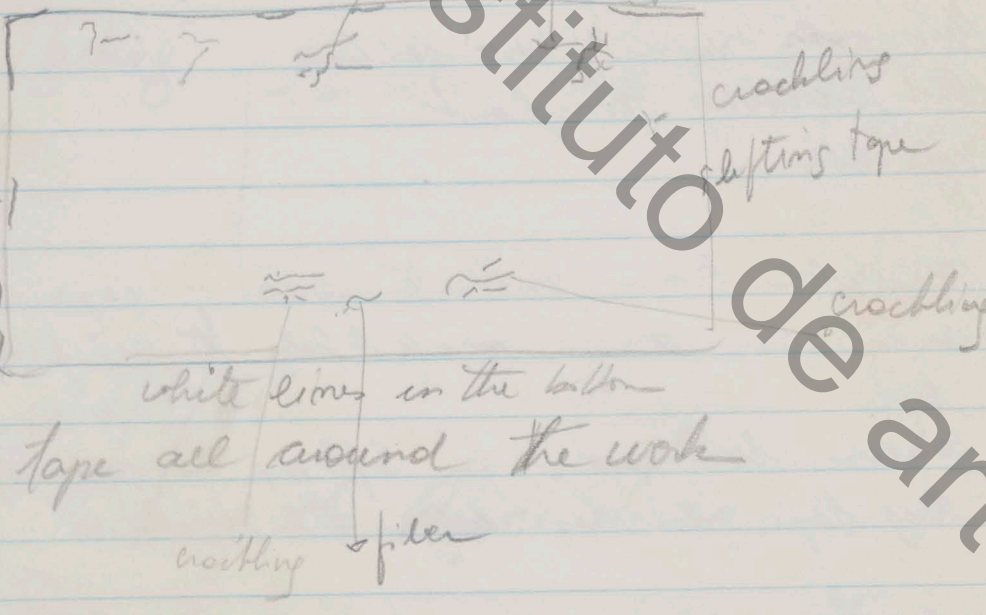 crackling
lifting tape
crackling
white lines in the bottom
tape all around the work
fiber
crackling
stituto de ar